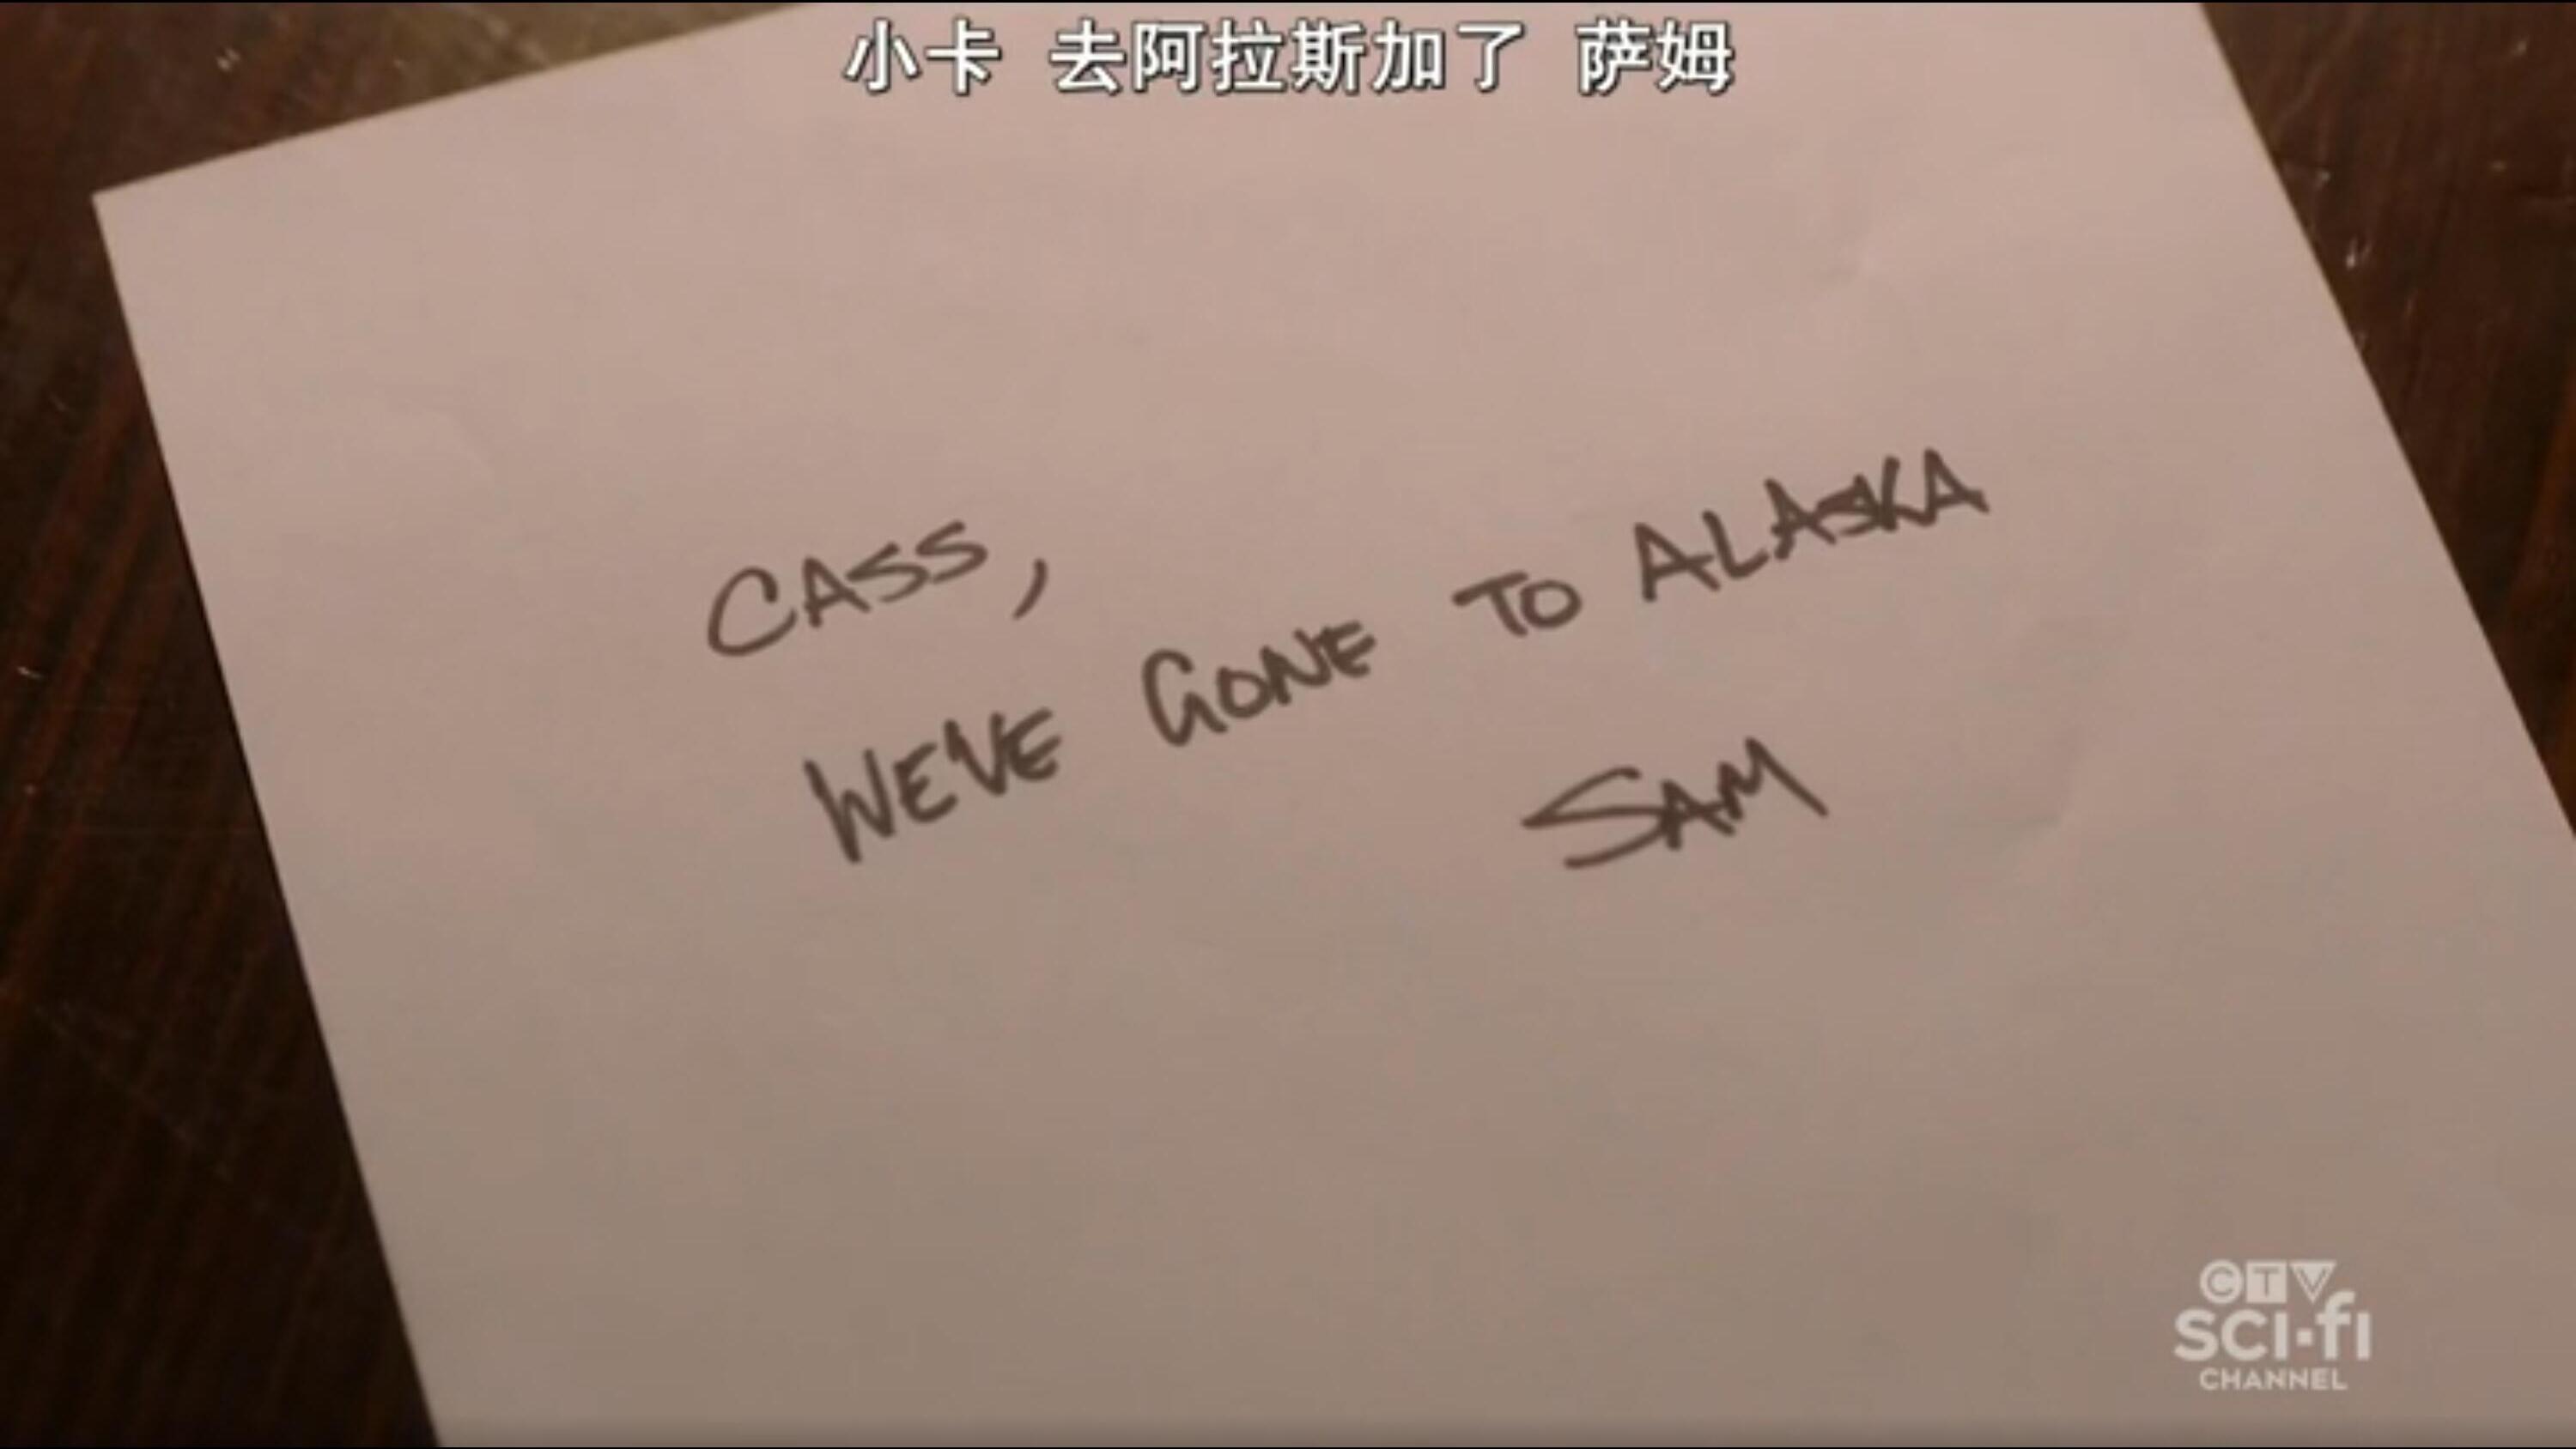 小卡 去阿拉斯加了 萨姆
CASS,
WE'VE GONE TO ALASKA
SAM
CTV
SCI-FI
CHANNEL